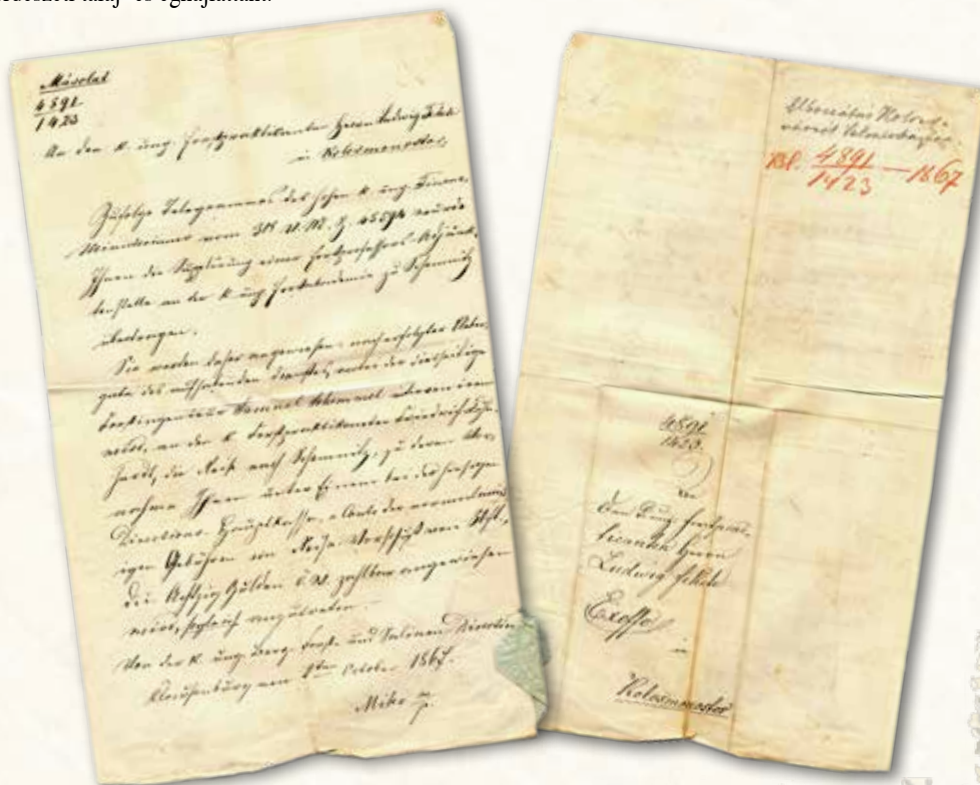 Másolat
4891
1423
An den k. ung. Forstpraktikanten Herrn Ludwig Fekete
in Kolosmonostor
Zufolge Telegrammes des hohen k. ung. Finanz
Ministeriums vom 30t v. M. Z. 45594 wurde
Ihnen die Supplirung einer Forstprofessors-Adjunk
tenstelle an der k. ung. Forstakademie zu Schemnitz
übertragen.
Sie werden daher angewiesen, nach erfolgter Ueber
gabe des aufhabenden Dienstes, unter der diesseitige
Forstingenieur Samuel
wird, an den k. Forstpraktikanten Friedrich
die Reise nach Schemnitz, zu deren Vor
nahme Ihnen unter Einem bei der hiesigen
Directions-Hauptkasse, a Conto der normalmäß
igen Gebühren ein Reise-Vorschuß von 80 fl.,
die Achtzig Gulden ö.W. zahlbar angewiesen
wird, sogleich anzutreten.
Von der k. ung. Berg- Forst- und Salinen Direction
Klausenburg am 1ten October 1867.
Miko
Kolozs-
Bl. 4891 — 1867
1423
4891
1423.
An
den k. ung. Forstprac
ticanten Herrn
Ludwig Fekete
Exoffo
in
Kolosmonostor